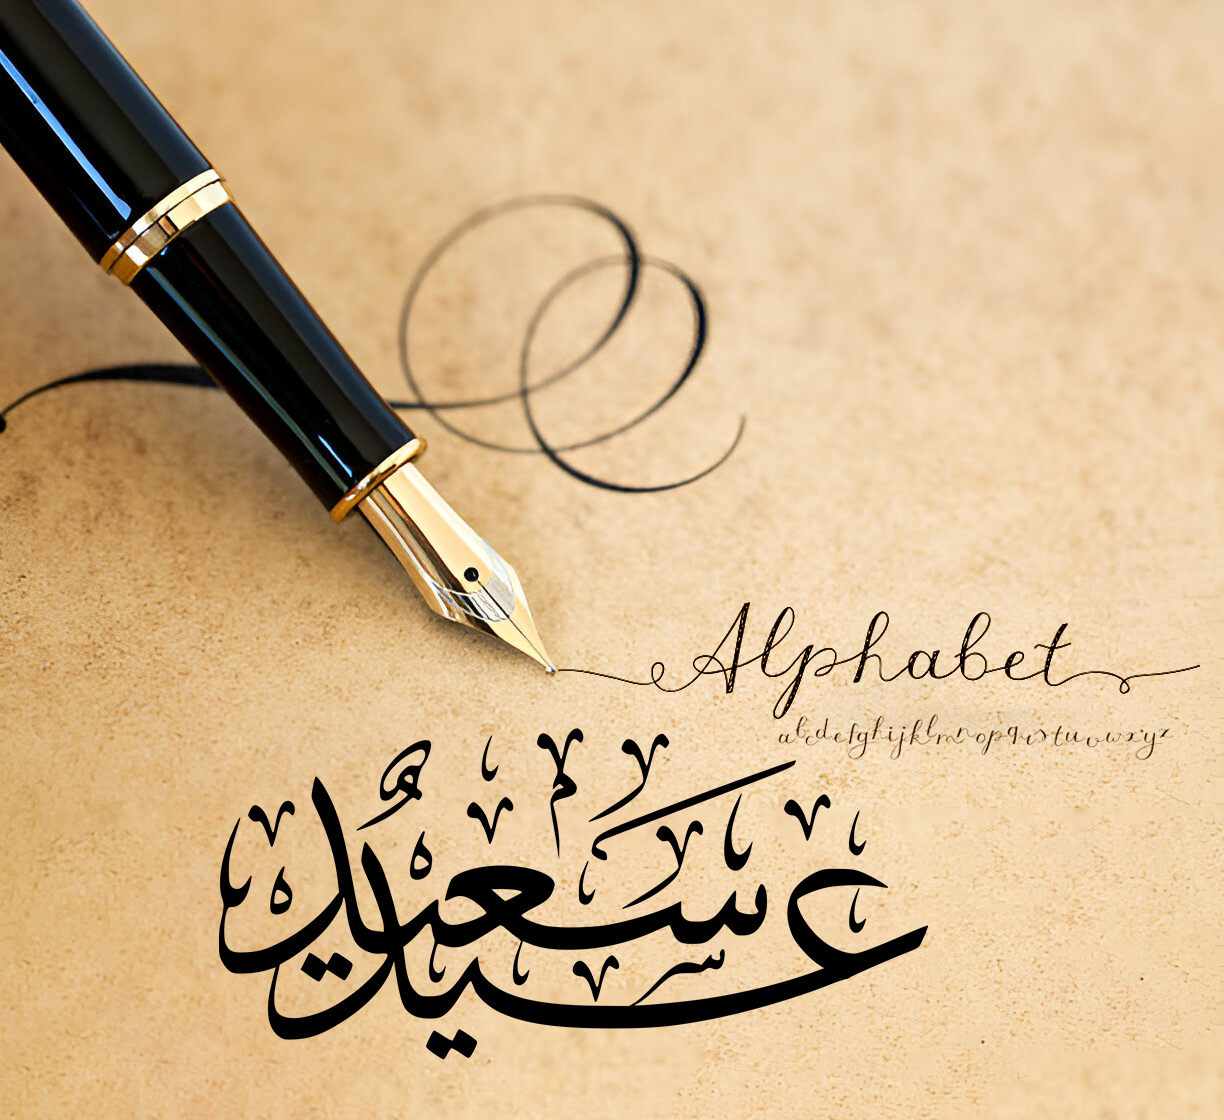 Alphabet
abcdefghijklmnopqrstuvwxyz
عيد سعيد